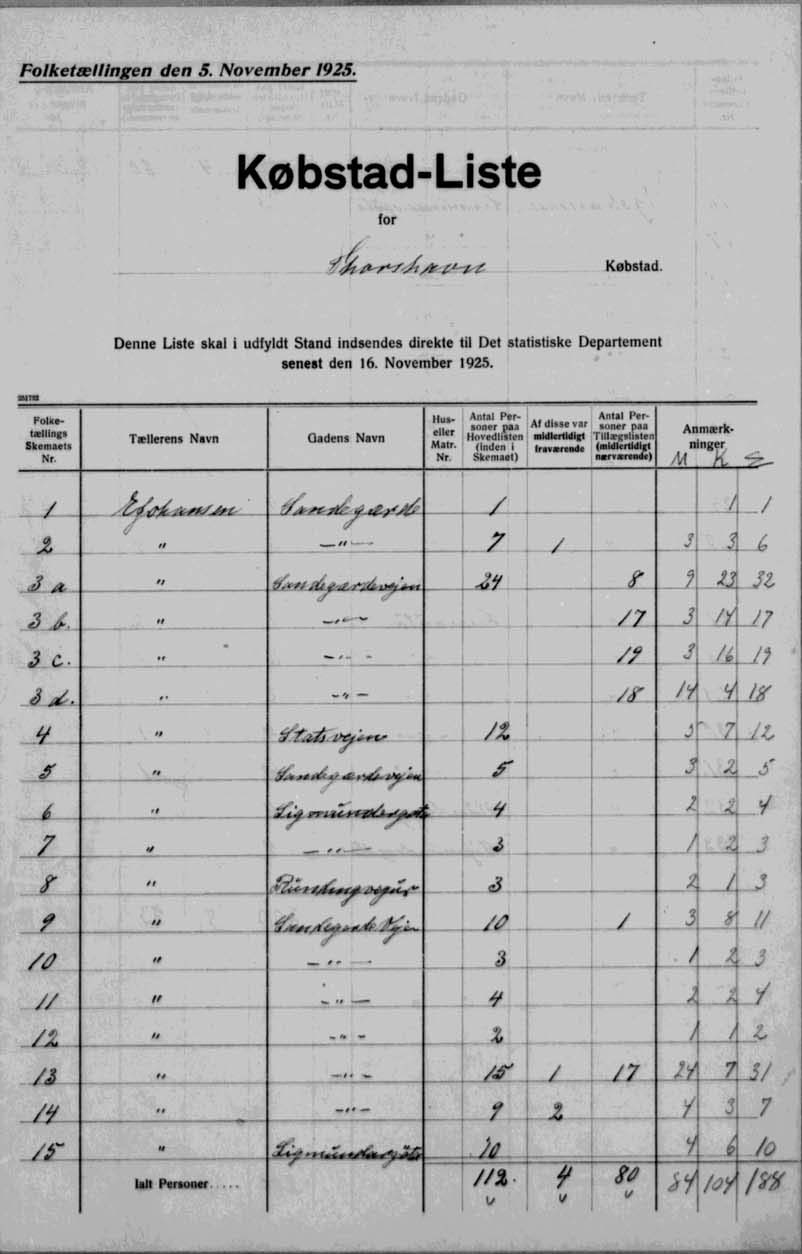 Folketællingen den 5. November 1925.
Købstad-Liste
for
Thorshavn Købstad.
Denne Liste skal i udfyldt Stand indsendes direkte til Det statistiske Departement
senest den 16. November 1925.
Folke-tællings Skemaets Nr. Tællerens Navn Gadens Navn Hus- eller Matr. Nr. Antal Per-soner paa Hovedlisten (inden i Skemaet) Af disse var midlertidigt fraværende Antal Per-soner paa Tillægslisten (midlertidigt nærværende) Anmærk-ninger M K S
1 EJohansen Sandegærde 1 1 1
2 " —"— 7 1 3 3 6
3 a " Sandegærdevejen 24 8 9 23 32
3 b. " —"— 17 3 14 17
3 c. " —"— 19 3 16 19
3 d. " —"— 18 14 4 18
4 " Statsvejen 12 5 7 12
5 " Sandegærdevejen 5 3 2 5
6 " Sigmundargøta 4 2 2 4
7 " —"— 3 1 2 3
8 " 3 2 1 3
9 " Sandegærde Vejen 10 1 3 8 11
10 " —"— 3 1 2 3
11 " —"— 4 2 2 4
12 " —"— 2 1 1 2
13 " —"— 15 1 17 24 7 31
14 " —"— 9 2 4 3 7
15 " Sigmundargøta 10 4 6 10
Ialt Personer..... 112. 4 80 84 104 188